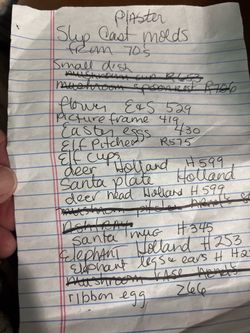 Plaster
Slip Cast molds
from 70s
Small dish
mushroom
mushroom spoonrest
flower E&S 529
Picture frame 419
Easter eggs 430
Elf Pitcher R575
Elf cups
deer Holland H599
Santa plate Holland
deer head Holland H599
mushroom
Santa mug H345
Elephant Holland H253
elephant legs & ears H
mushroom
ribbon egg 266